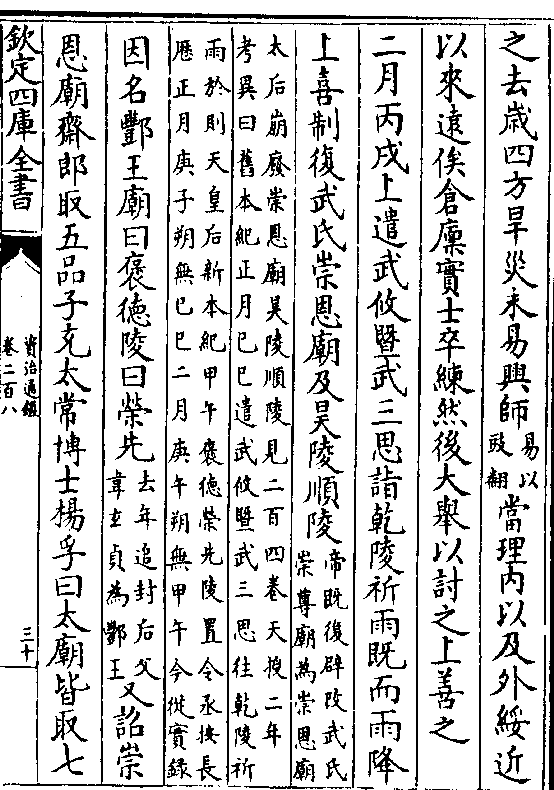 之去歲四方旱災未易興師易以
豉翻當理内以及外綏近
以來遠俟倉廩實士卒練然後大舉以討之上善之
二月丙戌上遣武攸曁武三思詣乾陵祈雨既而雨降
上喜制復武氏崇恩廟及昊陵順陵帝既復辟改武氏
崇尊廟為崇恩廟
太后崩廢崇恩廟昊陵順陵見二百四卷天授二年
考異曰舊本紀正月己巳遣武攸曁武三思往乾陵祈
雨於則天皇后新本紀甲午褒德榮先陵置令丞按長
厯正月庚子朔無己巳二月庚午朔無甲午今從實録
因名酆王廟曰褒德陵曰榮先去年追封后父
韋玄貞為酆王又詔崇
恩廟齋郎取五品子充太常博士楊孚曰太廟皆取七
欽定四庫全書
資治通鑑
卷二百八
三十